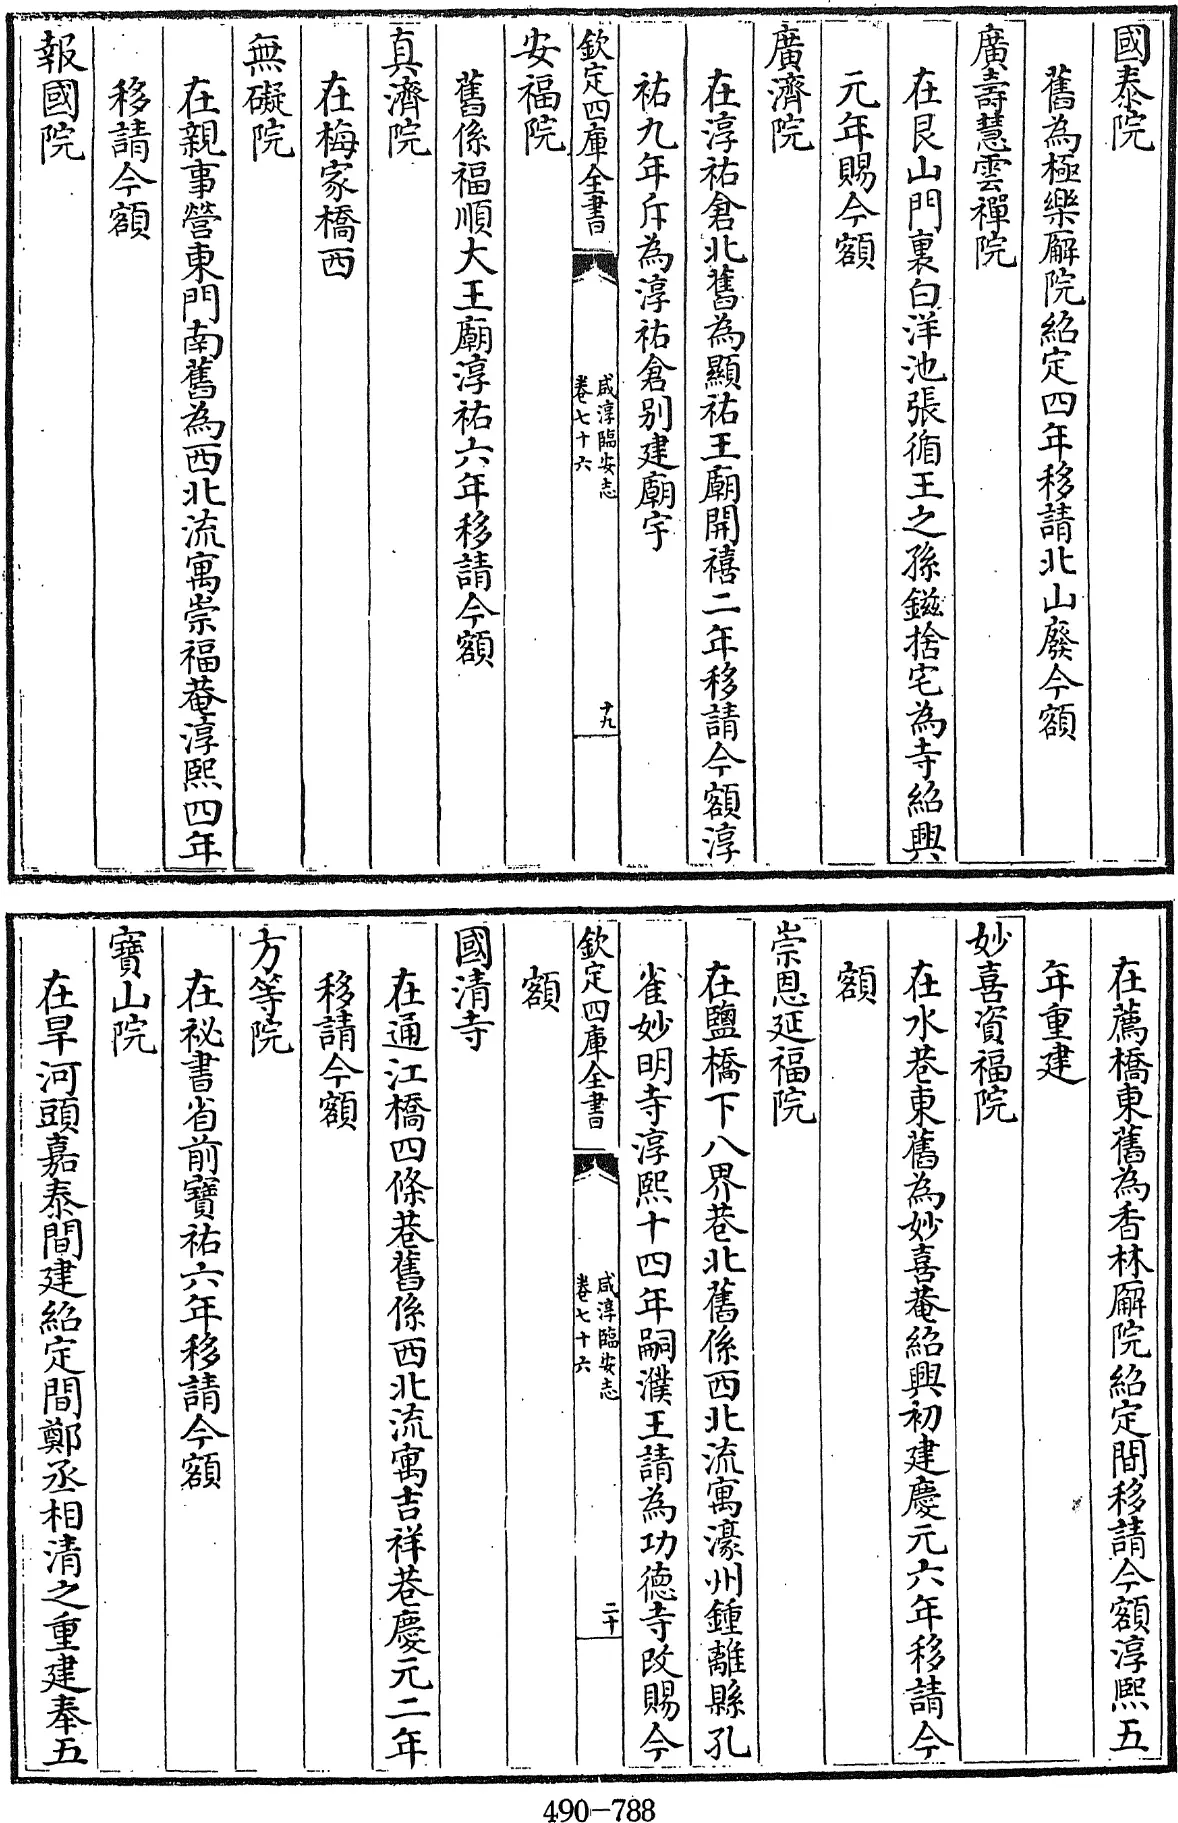 國泰院
舊為極樂廨院紹定四年移請北山廢今額
廣壽慧雲禪院
在艮山門裏白洋池張循王之孫鎡捨宅為寺紹興
元年賜今額
廣濟院
在淳祐倉北舊為顯祐王廟開禧二年移請今額淳
祐九年斥為淳祐倉别建廟宇
欽定四庫全書
咸淳臨安志
卷七十六
十九
安福院
舊係福順大王廟淳祐六年移請今額
真濟院
在梅家橋西
無礙院
在親事營東門南舊為西北流寓崇福菴淳熙四年
移請今額
報國院
在薦橋東舊為香林廨院紹定間移請今額淳熙五
年重建
妙喜資福院
在水巷東舊為妙喜菴紹興初建慶元六年移請今
額
崇恩延福院
在鹽橋下八界巷北舊係西北流寓濠州鍾離縣孔
雀妙明寺淳熙十四年嗣濮王請為功德寺改賜今
欽定四庫全書
咸淳臨安志
卷七十六
二十
額
國清寺
在通江橋四條巷舊係西北流寓吉祥巷慶元二年
移請今額
方等院
在祕書省前寶祐六年移請今額
寶山院
在旱河頭嘉泰間建紹定間鄭丞相清之重建奉五
490-788